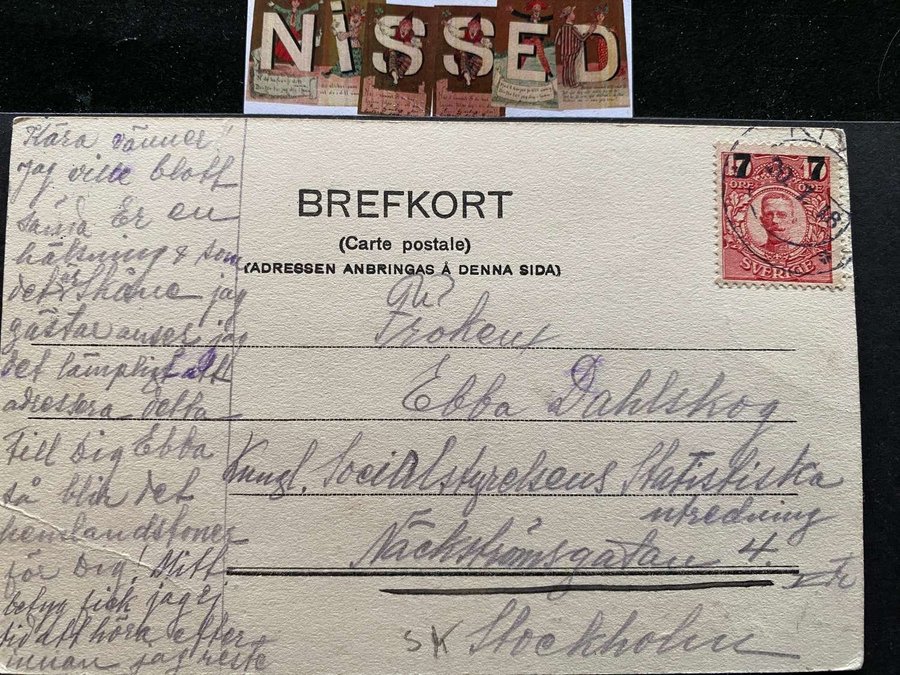 NISSED
Kära vänner!
Jag ville blott
sända Er en
hälsning & som
det är Skåne jag
gästar anser jag
det lämpligt att
adressera detta
till Dig Ebba
så blir det
hemlandstoner
för Dig! Mitt
betyg fick jag ej
tid att höra efter
innan jag reste
BREFKORT
(Carte postale)
(ADRESSEN ANBRINGAS Å DENNA SIDA)
7 7
ÖRE ÖRE
SVERIGE
18
Fröken
Ebba Dahlskog
Kungl. Socialstyrelsens Statistiska
utredning
Näckströmsgatan 4.
SK Stockholm